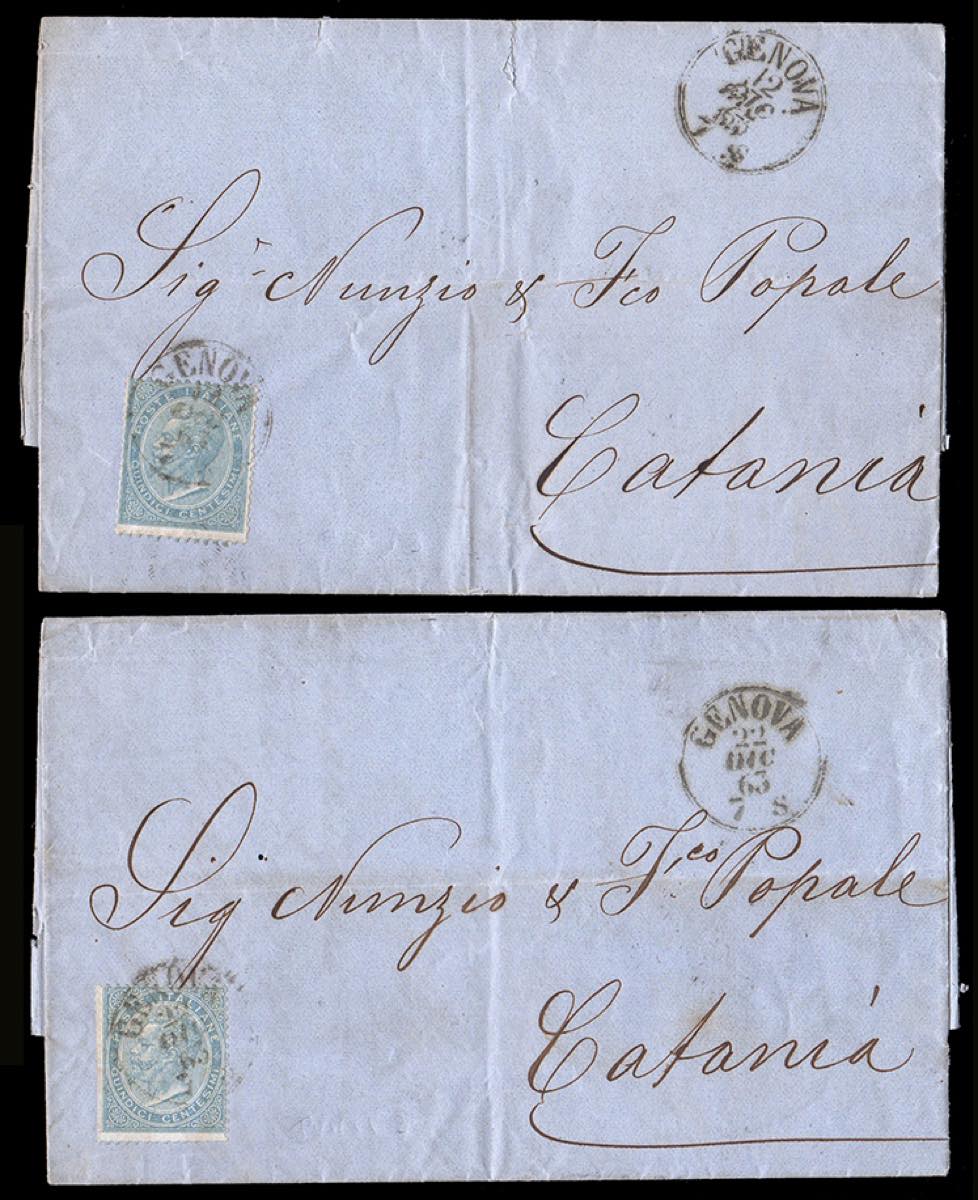 GENOVA
12
DIC
63
7 S
Sigr Nunzio & Fco Popale
GENOVA
12
POSTE ITALIANE
QUINDICI CENTESIMI
Catania
GENOVA
22
DIC
63
7 S
Sig Nunzio & F.co Popale
ITALIANE
QUINDICI CENTESIMI
Catania